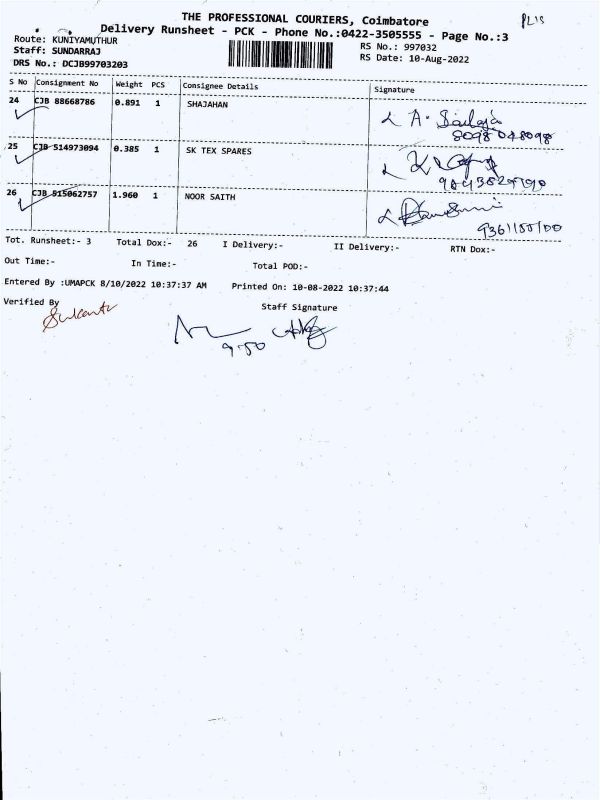 THE PROFESSIONAL COURIERS, Coimbatore
Delivery Runsheet - PCK - Phone No.:0422-3505555 - Page No.:3
Route: KUNIYAMUTHUR
RS No.: 997032
Staff: SUNDARRAJ
RS Date: 10-Aug-2022
DRS No.: DCJB99703203
S No Consignment No Weight PCS Consignee Details Signature
24 CJB 88668786 0.891 1 SHAJAHAN
8098048098
25 CJB 514973094 0.385 1 SK TEX SPARES
26 CJB 515062757 1.960 1 NOOR SAITH
Tot. Runsheet:- 3 Total Dox:- 26 I Delivery:- II Delivery:- RTN Dox:-
Out Time:- In Time:- Total POD:-
Entered By :UMAPCK 8/10/2022 10:37:37 AM Printed On: 10-08-2022 10:37:44
Verified By Staff Signature
9.50